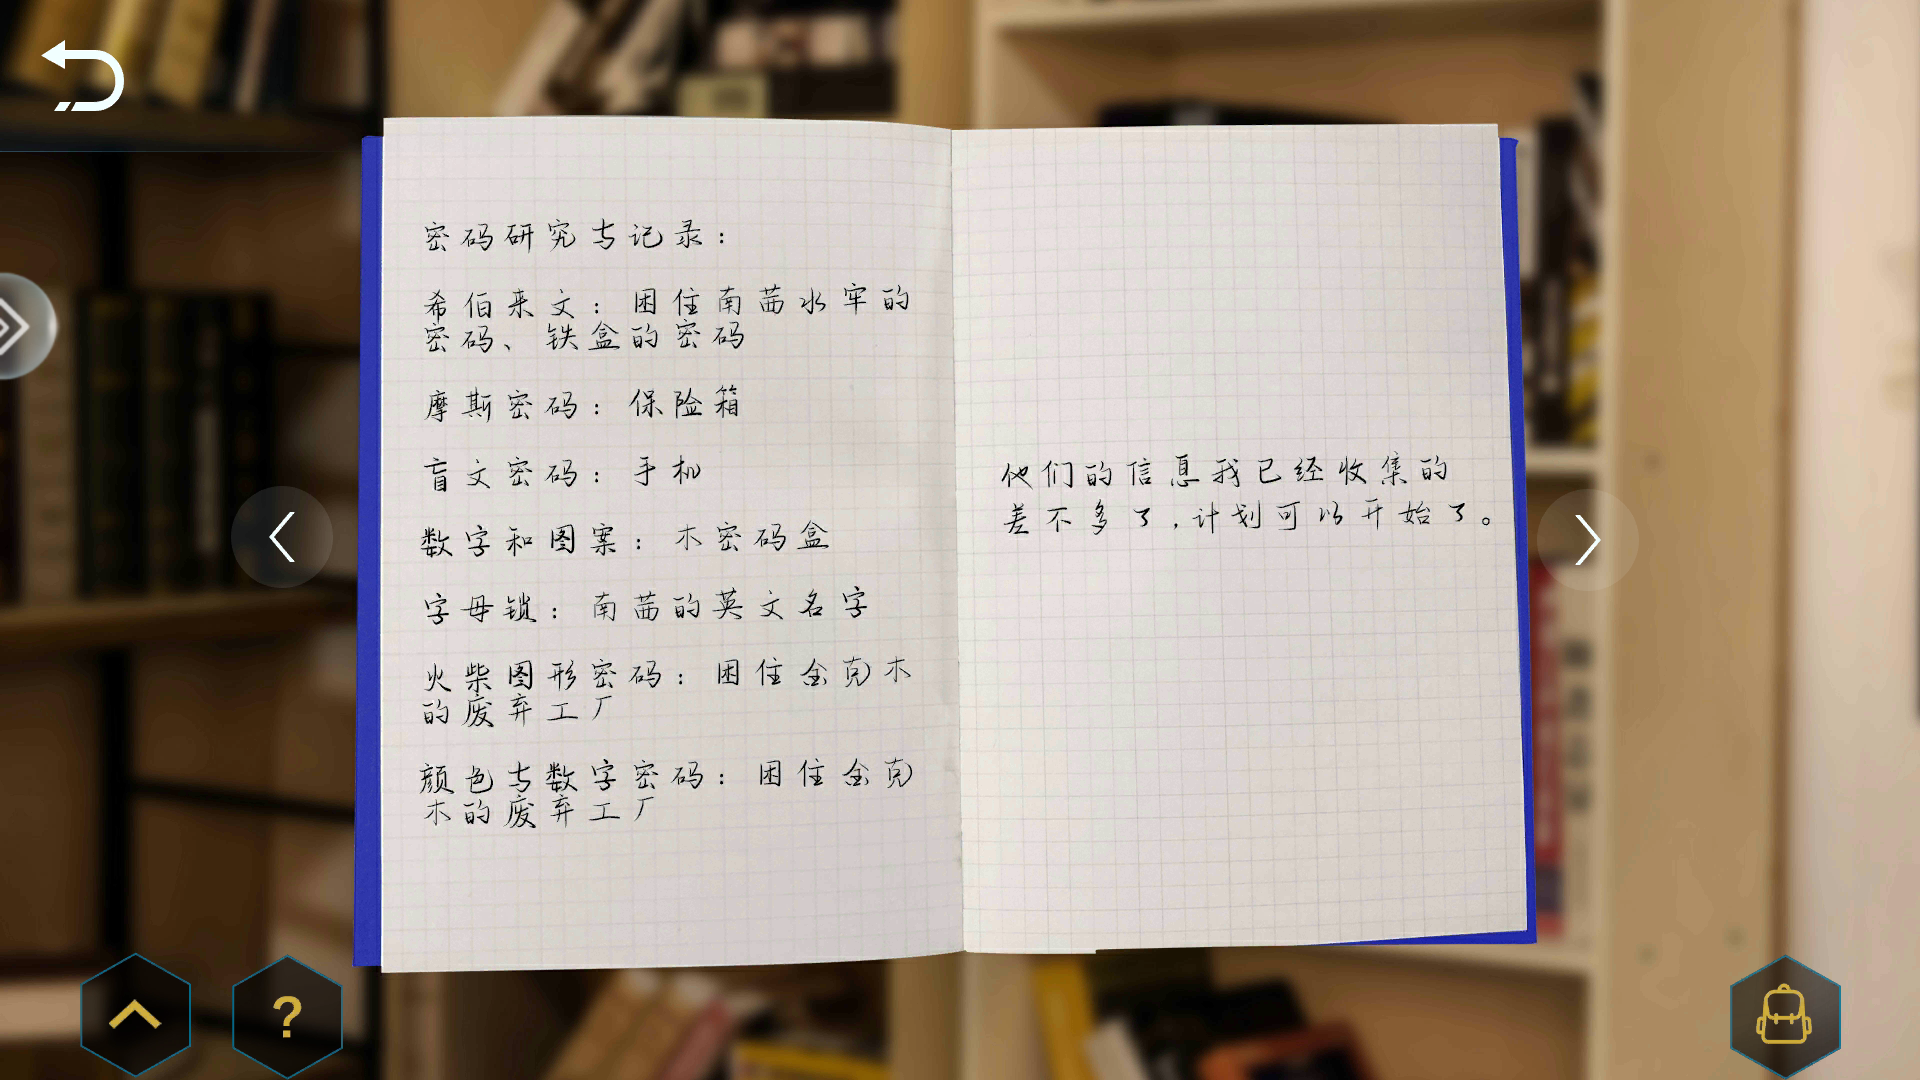 密码研究与记录：
希伯来文：困住南茜水牢的
密码、铁盒的密码
摩斯密码：保险箱
盲文密码：手机
数字和图案：木密码盒
字母锁：南茜的英文名字
火柴图形密码：困住金克木
的废弃工厂
颜色与数字密码：困住金克
木的废弃工厂
他们的信息我已经收集的
差不多了,计划可以开始了。
?